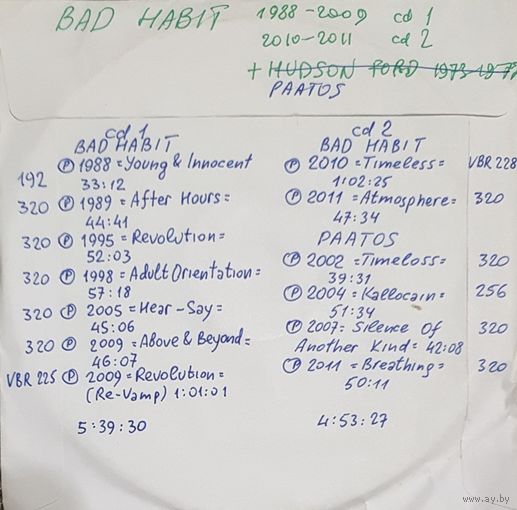 BAD HABIT 1988-2009 cd 1
2010-2011 cd 2
+ HUDSON FORD 1973-197
PAATOS
cd 1
BAD HABIT
192 Ⓟ 1988 = Young & Innocent
33:12
320 Ⓟ 1989 = After Hours =
44:41
320 Ⓟ 1995 = Revolution =
52:03
320 Ⓟ 1998 = Adult Orientation =
57:18
320 Ⓟ 2005 = Hear-Say =
45:06
320 Ⓟ 2009 = Above & Beyond =
46:07
VBR 225 Ⓟ 2009 = Revolution =
(Re-Vamp) 1:01:01
5:39:30
cd 2
BAD HABIT
Ⓟ 2010 = Timeless = VBR 228
1:02:25
Ⓟ 2011 = Atmosphere = 320
47:34
PAATOS
Ⓟ 2002 = Timeloss = 320
39:31
Ⓟ 2004 = Kallocain = 256
51:34
Ⓟ 2007 = Silence Of 320
Another Kind = 42:08
Ⓟ 2011 = Breathing = 320
50:11
4:53:27
www.ay.by